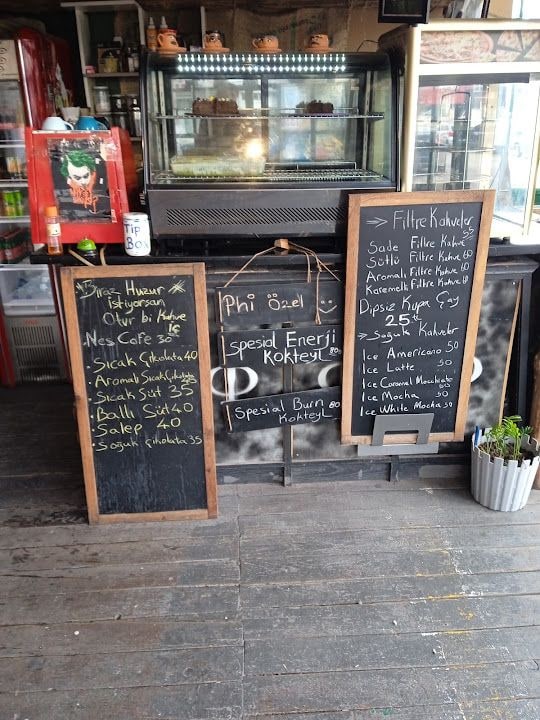 TIP
BOX
Biraz Huzur
istiyorsan
Otur bi Kahve
iç
Nes Cafe 30
Sıcak Çikolata 40
Aromalı Sıcak Çikolata
Sıcak Süt 35
Ballı Süt 40
Salep 40
Soğuk Çikolata 35
Phi Özel
Spesial Enerji
Kokteyl 80
Spesial Burn
Kokteyl 80
Filtre Kahveler
Sade Filtre Kahve 55
Sütlü Filtre Kahve 60
Aromalı Filtre Kahve 60
Karemelli Filtre Kahve 60
Dipsiz Kupa Çay
25 tl
Soğuk Kahveler
Ice Americano 50
Ice Latte 50
Ice Caramel Macchiato 50
Ice Mocha 50
Ice White Mocha 50